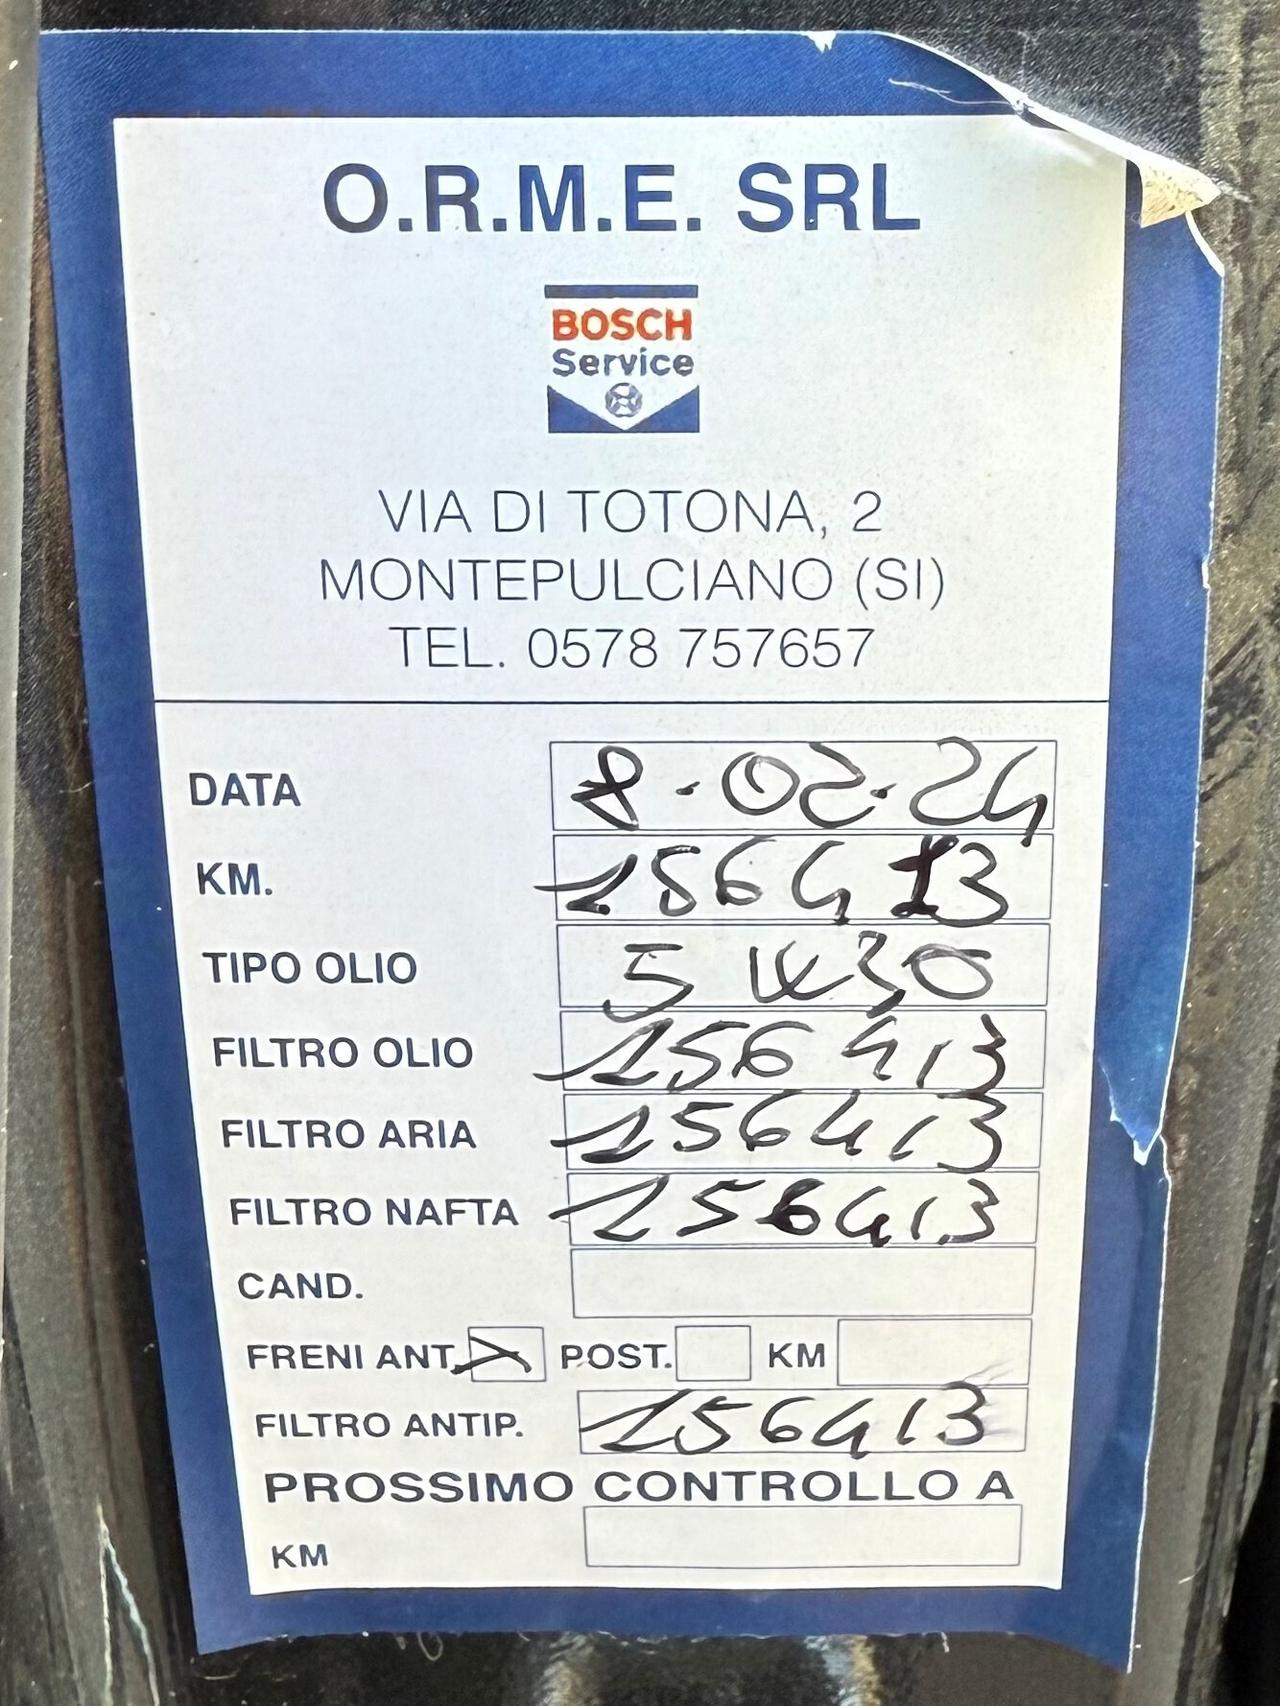 O.R.M.E. SRL
BOSCH
Service
VIA DI TOTONA, 2
MONTEPULCIANO (SI)
TEL. 0578 757657
DATA 8.02.24
KM. 156413
TIPO OLIO 5W30
FILTRO OLIO 156413
FILTRO ARIA 156413
FILTRO NAFTA 156413
CAND.
FRENI ANT. POST. KM
FILTRO ANTIP. 156413
PROSSIMO CONTROLLO A
KM